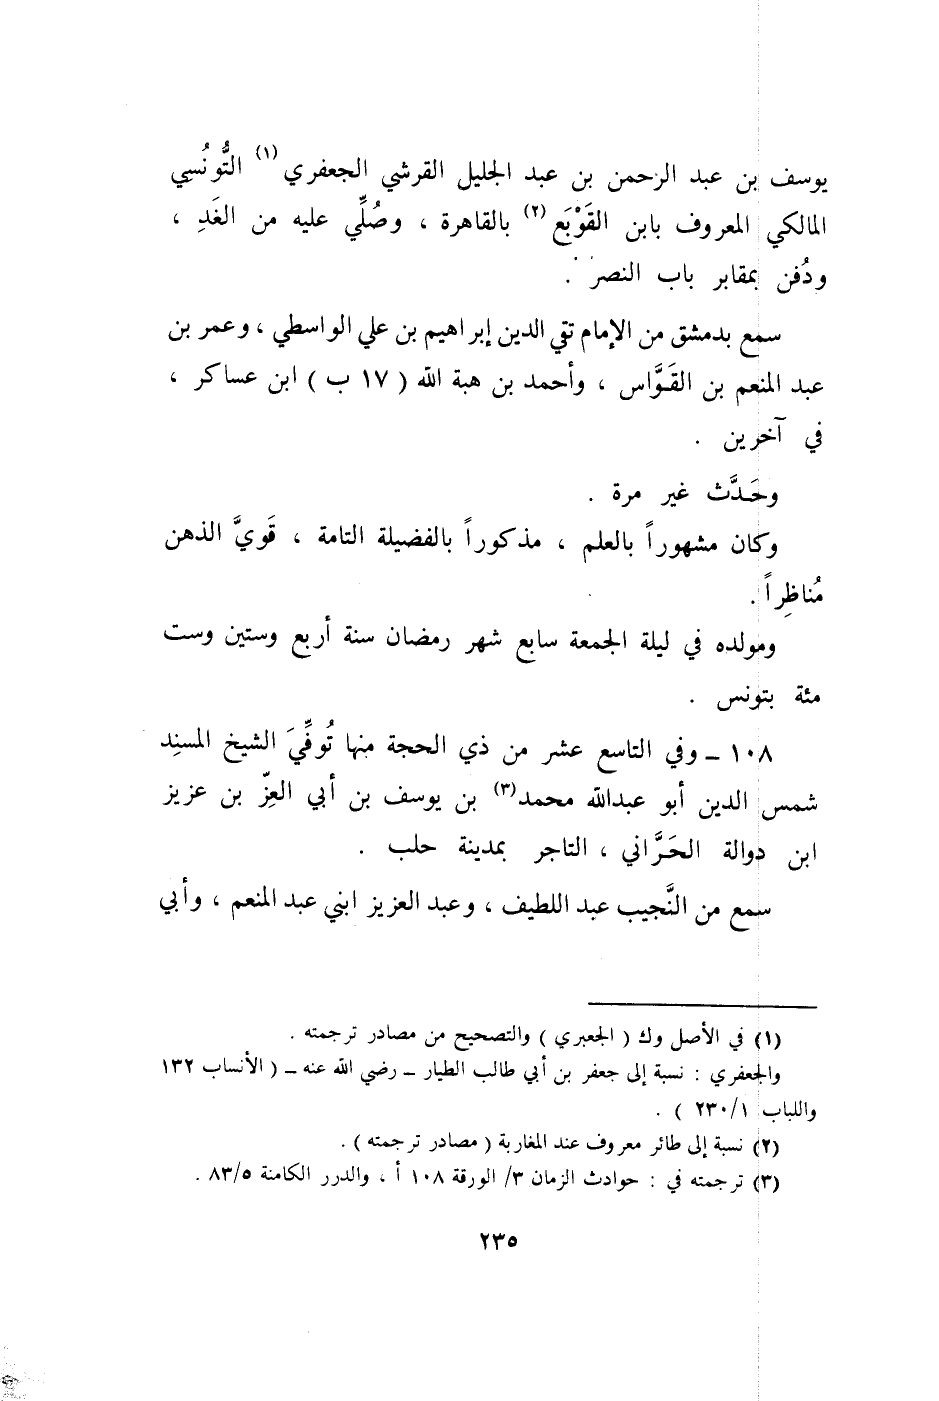 يوسف بن عبد الرحمن بن عبد الجليل القرشي الجعفري(١) التُّونُسِي
المالكي المعروف بابن القَوْبَع(٢) بالقاهرة ، وصُلِّي عليه من الغَدِ ،
ودُفن بمقابر باب النصر .
سمع بدمشق من الإمام تقي الدين إبراهيم بن علي الواسطي ، وعمر بن
عبد المنعم بن القَوَّاس ، وأحمد بن هبة الله ( ١٧ ب ) ابن عساكر ،
في آخرين .
وحَدَّث غير مرة .
وكان مشهوراً بالعلم ، مذكوراً بالفضيلة التامة ، قَويَّ الذهن
مُناظِراً .
ومولده في ليلة الجمعة سابع شهر رمضان سنة أربع وستين وست
مئة بتونس .
١٠٨ ـ وفي التاسع عشر من ذي الحجة منها تُوفِّيَ الشيخ المسنِد
شمس الدين أبو عبدالله محمد(٣) بن يوسف بن أبي العِزّ بن عزيز
ابن دوالة الحَرَّاني ، التاجر بمدينة حلب .
سمع من النَّجيب عبد اللطيف ، وعبد العزيز ابني عبد المنعم ، وأبي
(١) في الأصل وك ( الجعبري ) والتصحيح من مصادر ترجمته .
والجعفري : نسبة إلى جعفر بن أبي طالب الطيار ـ رضي الله عنه ـ ( الأنساب ١٣٢
واللباب ٢٣٠/١ ) .
(٢) نسبة إلى طائر معروف عند المغاربة ( مصادر ترجمته ) .
(٣) ترجمته في : حوادث الزمان ٣/ الورقة ١٠٨ أ ، والدرر الكامنة ٨٣/٥ .
٢٣٥